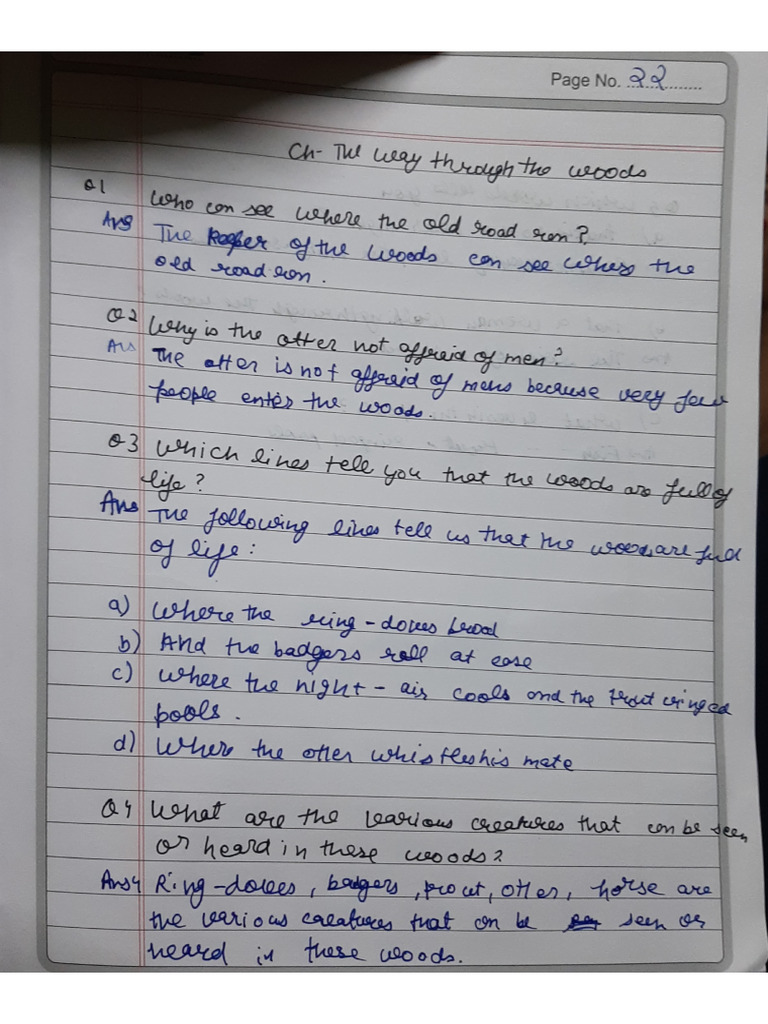 Page No. 22
Ch- The way through the woods
Q1 Who can see where the old road ran?
Ans The Keeper of the woods can see where the
old road ran.
Q2 Why is the otter not affraid of men?
Ans The otter is not affraid of mens because very few
people enter the woods.
Q3 Which lines tell you that the woods are full of
life?
Ans The following lines tell us that the woods are full
of life:
a) Where the ring-doves brood
b) And the badgers roll at ease
c) Where the night-air cools and the trout ringed
pools.
d) Where the otter whistles his mate
Q4 What are the various creatures that can be seen
or heard in these woods?
Ans4 Ring-doves, badgers, prout, otter, horse are
the various creatures that can be seen or
heard in these woods.